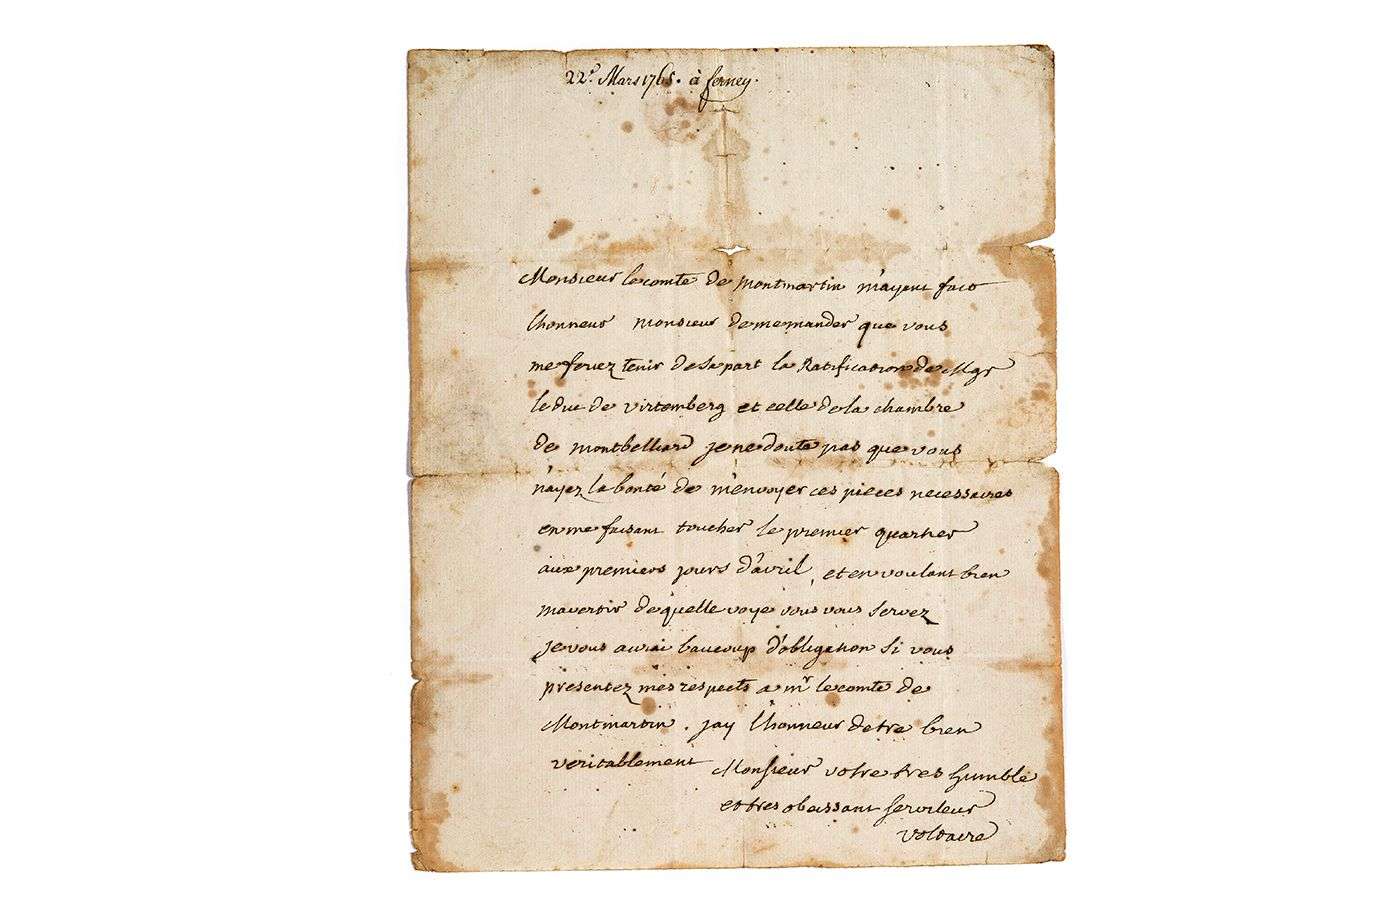 22e. Mars 1765. à ferney.
Monsieur le comte de Montmartin m'ayant fait
lhonneur monsieur de me mander que vous
me feriez tenir de sa part la Ratification de Mgr
le duc de virtemberg et celle de la chambre
de montbelliard je ne doute pas que vous
n'ayez la bonté de m'envoyer ces pieces necessaires
en me faisant toucher le premier quartier
aux premiers jours d'avril, et en voulant bien
mavertir de quelle voye vous vous servez
je vous aurai baucoup d'obligation si vous
presentez mes respects a mr le comte de
Montmartin. jay lhonneur detre bien
veritablement Monsieur votre tres humble
et tres obeissant serviteur
voltaire